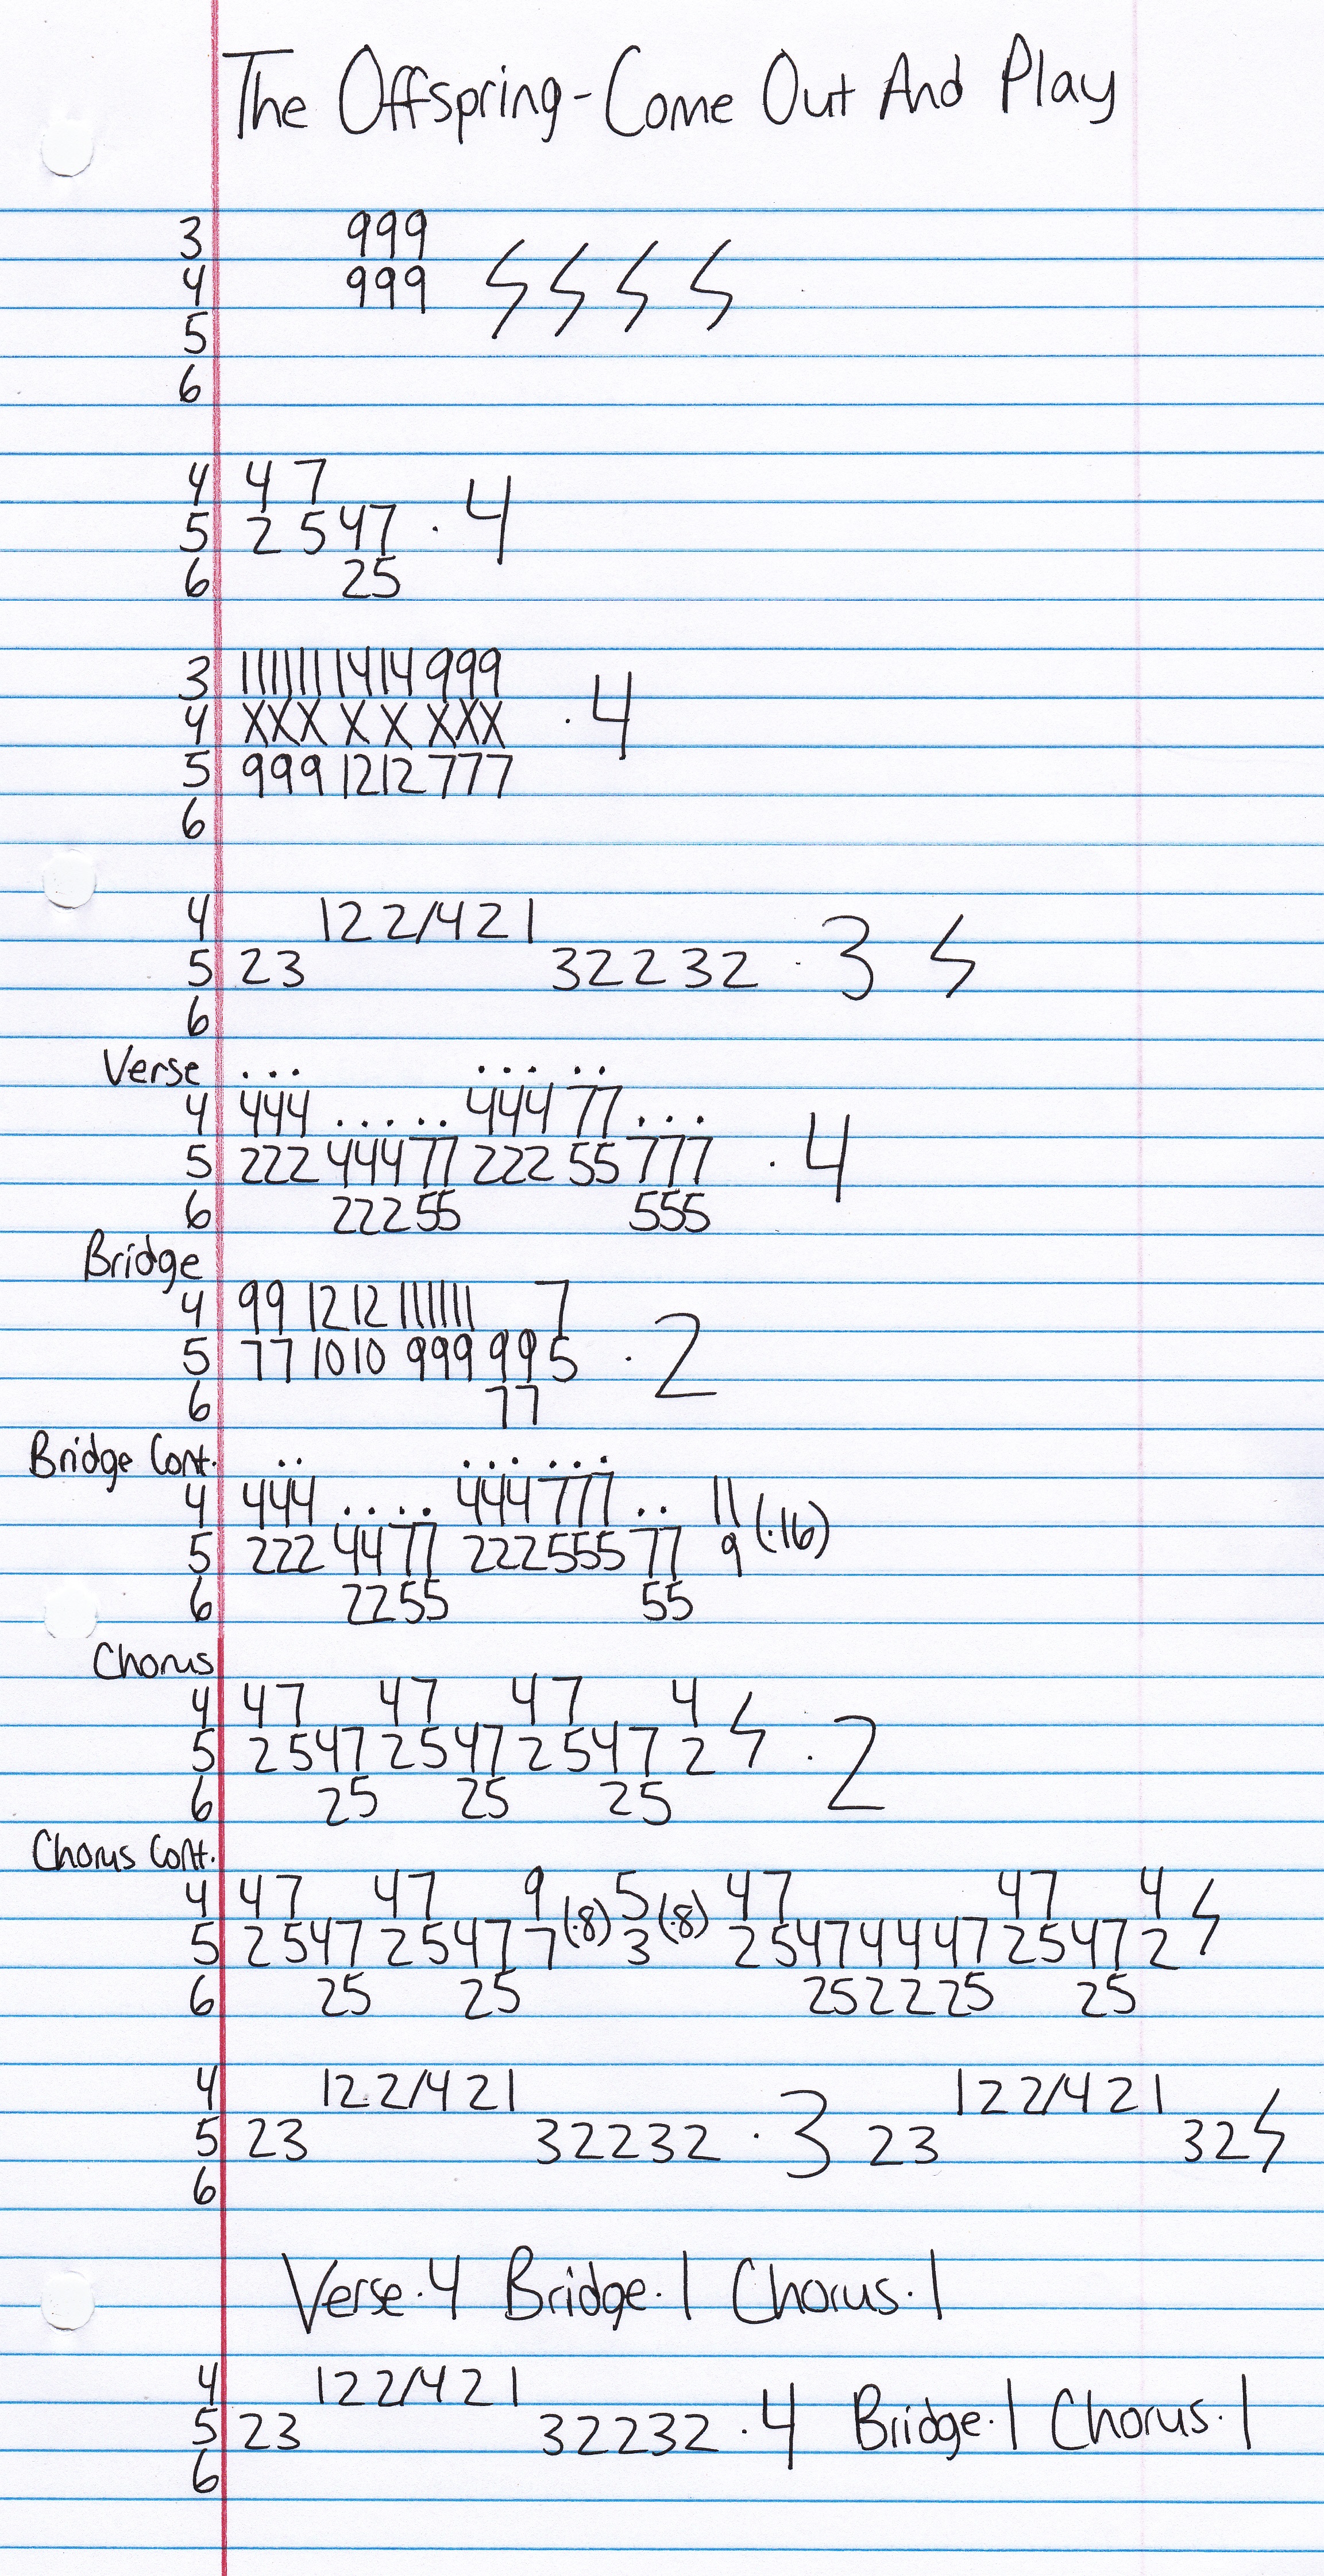 The Offspring - Come Out And Play
3 999
4 999
5
6
4 4 7
5 2 5 4 7 · 4
6 2 5
3 11 11 11 14 14 9 9 9
4 X X X X X X X X · 4
5 9 9 9 12 12 7 7 7
6
4 1 2 2/4 2 1
5 2 3 3 2 2 3 2 · 3
6
Verse . . . . . . . .
4 444 . . . . . 444 77 . . .
5 222 444 77 222 55 777 · 4
6 222 55 555
Bridge
4 99 12 12 11 11 11 7
5 77 10 10 999 99 5 · 2
6 77
Bridge Cont. . . . . . . . .
4 444 . . . . 444 777 . . 11
5 222 44 77 222 555 77 9 (·16)
6 22 55 55
Chorus
4 4 7 4 7 4 7 4
5 2 5 4 7 2 5 4 7 2 5 4 7 2 · 2
6 2 5 2 5 2 5
Chorus Cont.
4 4 7 4 7 9 5 4 7 4 7 4
5 2 5 4 7 2 5 4 7 7 (·8) 3 (·8) 2 5 4 7 4 4 4 7 2 5 4 7 2
6 2 5 2 5 2 5 2 2 2 5 2 5
4 1 2 2/4 2 1 1 2 2/4 2 1
5 2 3 3 2 2 3 2 · 3 2 3 3 2
6
Verse · 4 Bridge · 1 Chorus · 1
4 1 2 2/4 2 1
5 2 3 3 2 2 3 2 · 4 Bridge · 1 Chorus · 1
6